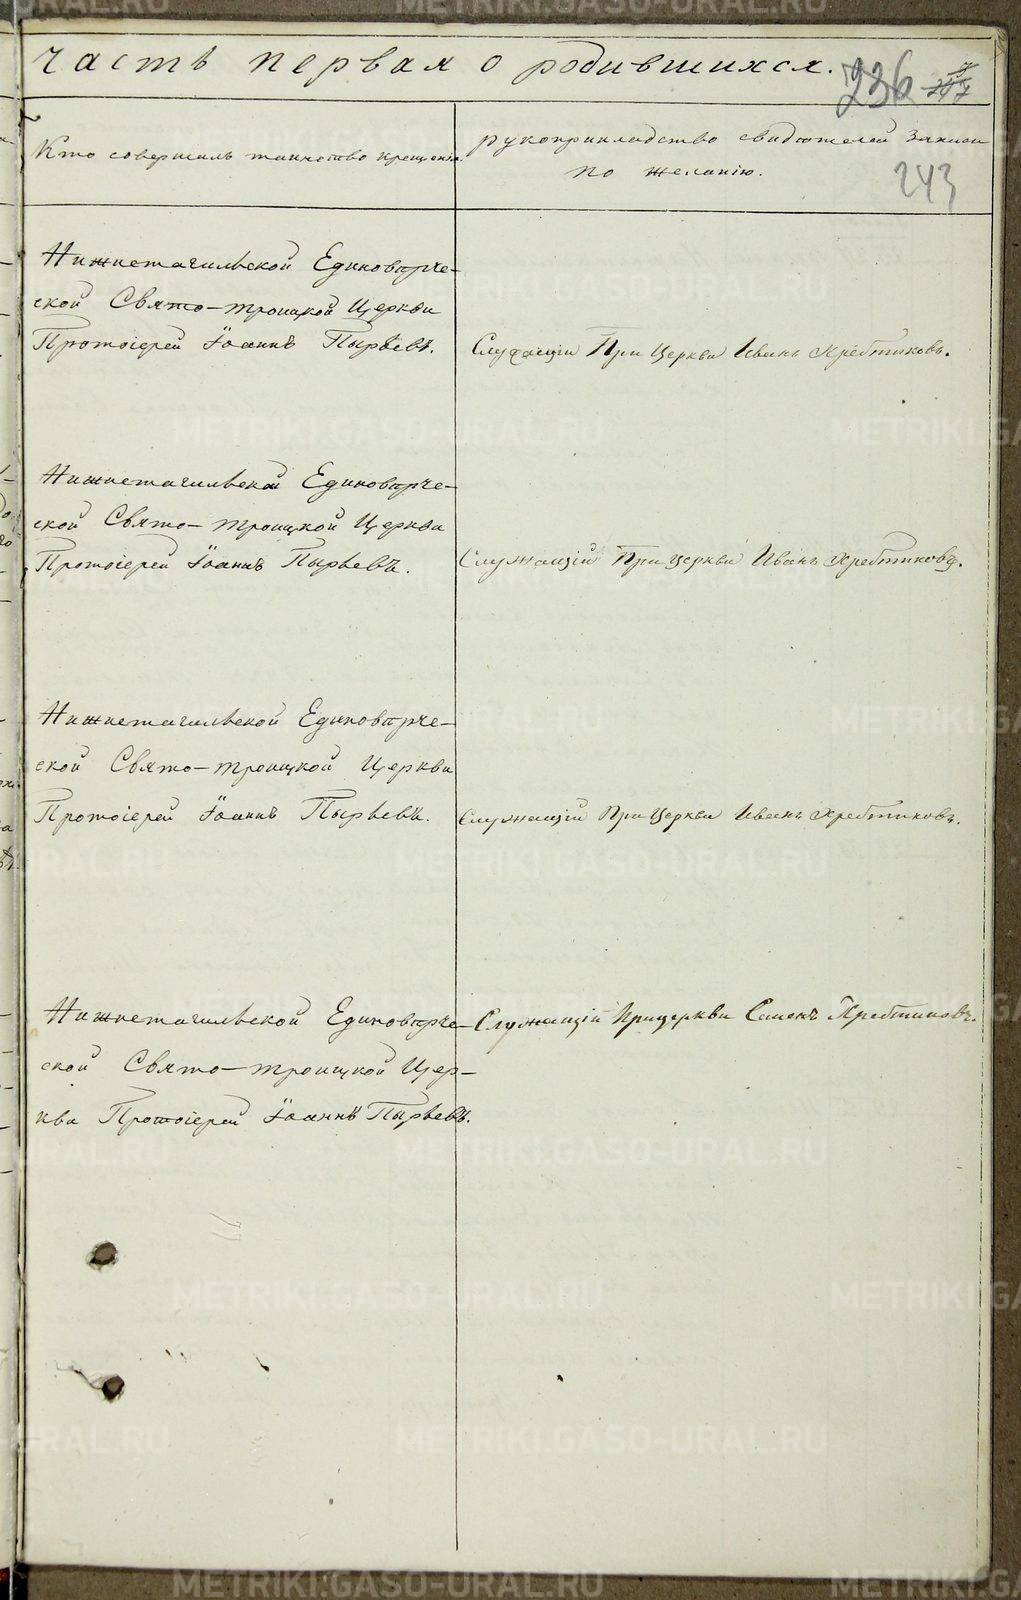 часть первая о родившихся.
236
243
Кто совершилъ таинство крещенія.
рукоприкладство свидѣтелей записи
по желанію.
Нижнетагильской Единовѣрче-
ской Свято-Троицкой Церкви
Протоіерей Іоаннъ Пырьевъ.
Служащій При Церкви Иванъ Хребтиковъ.
Нижнетагильской Единовѣрче-
ской Свято-Троицкой Церкви
Протоіерей Іоаннъ Пырьевъ.
Служащій При церкви Иванъ Хребтиковъ.
Нижнетагильской Единовѣрче-
ской Свято-Троицкой Церкви
Протоіерей Іоаннъ Пырьевъ.
Служащій При Церкви Иванъ Хребтиковъ.
Нижнетагильской Единовѣрче-
ской Свято-Троицкой Цер-
кви Протоіерей Іоаннъ Пырьевъ.
Служащій При церкви Семенъ Хребтиковъ.
METRIKI.GASO-URAL.RU